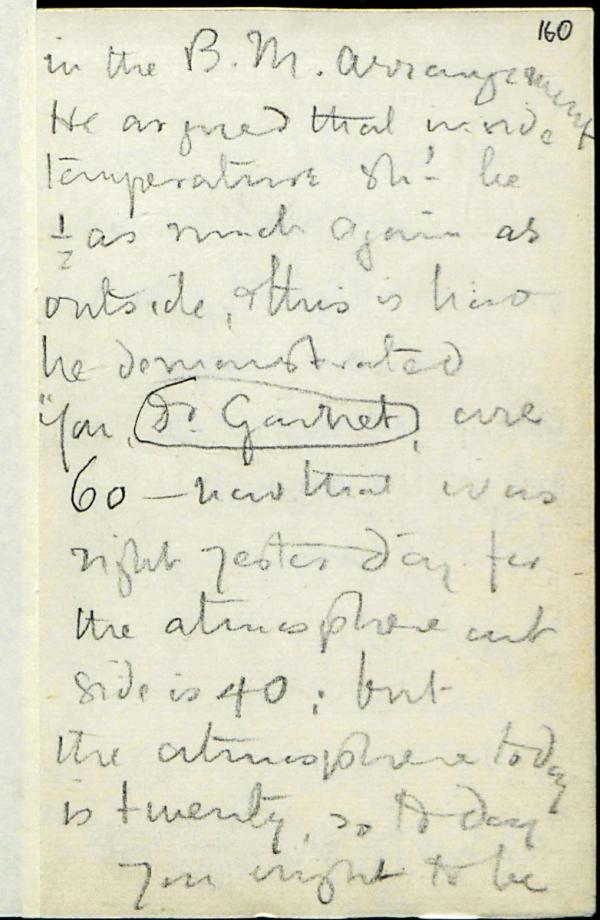 160
in the B. M. arrangement
He argued that inside
temperature shd. be
½ as much again as
outside, & this is how
he demonstrated
"You, Dr. Garnet, are
60 – now that was
right yesterday for
the atmosphere out
side is 40; but
the atmosphere today
is twenty, so to day
you ought to be